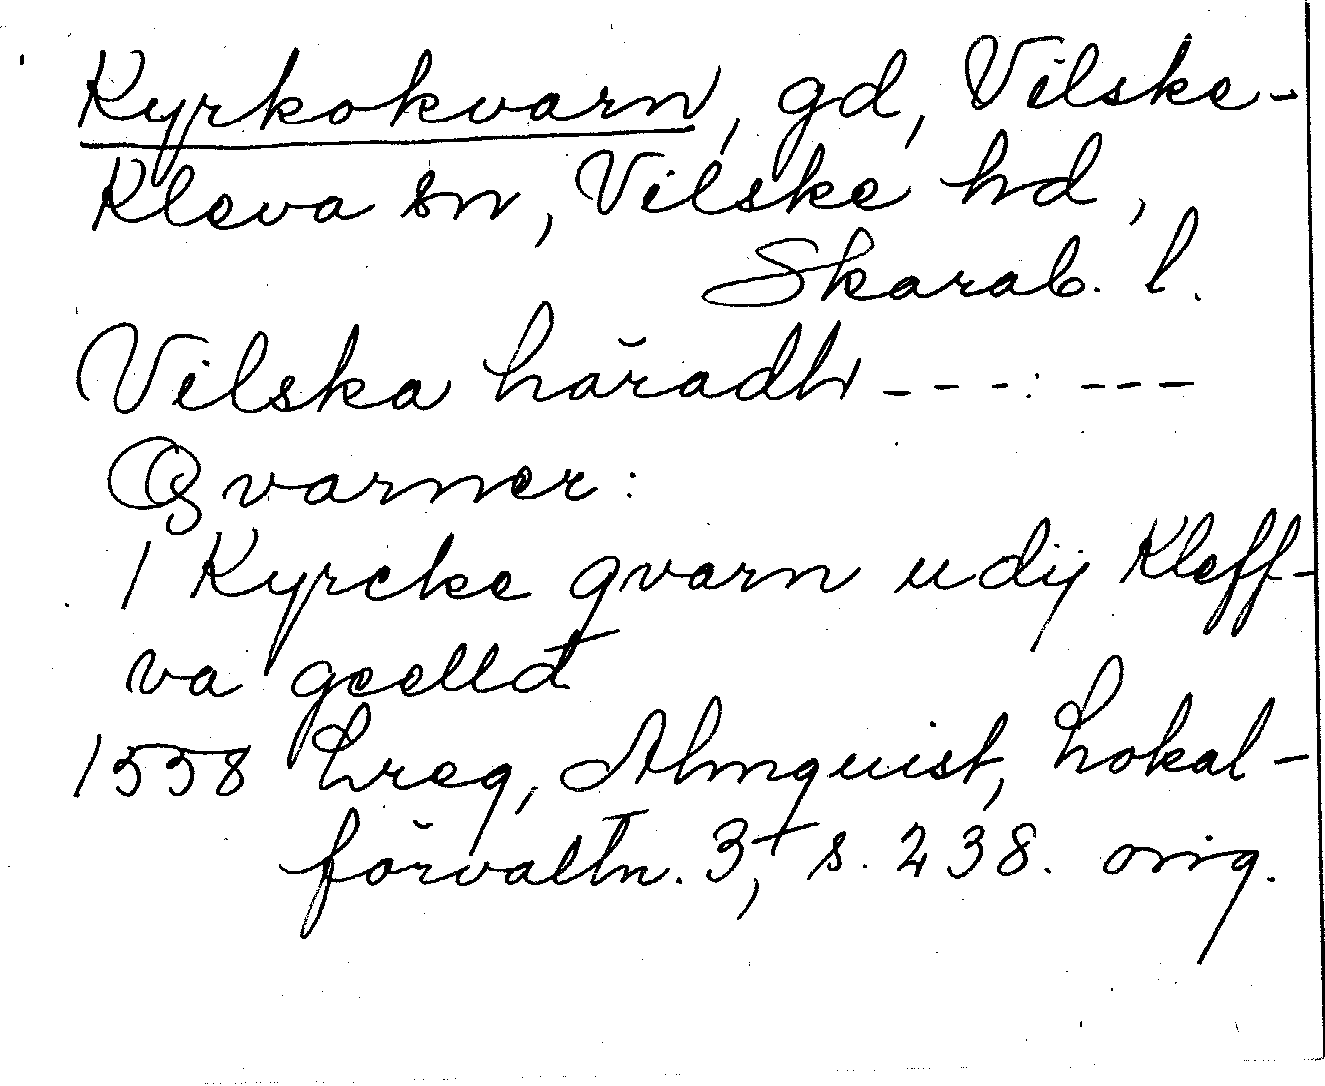 Kyrkokvarn, gd, Vilske-
Kleva sn, Vilske hd,
Skarab. l.
Vilska häradh ---: ---
Qvarner:
1 Kyrcke qvarn udij Kleff-
va geelld
1558 Lreg, Almquist, Lokal-
förvaltn. 3, s. 238. orig.